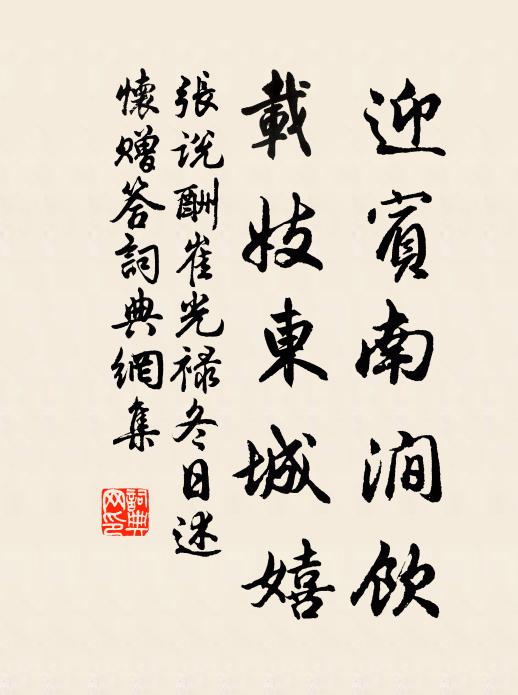 迎賓南澗飲
載妓東城嬉
張説酬崔光祿冬日述
懷贈答詞典網集
詞典
网印